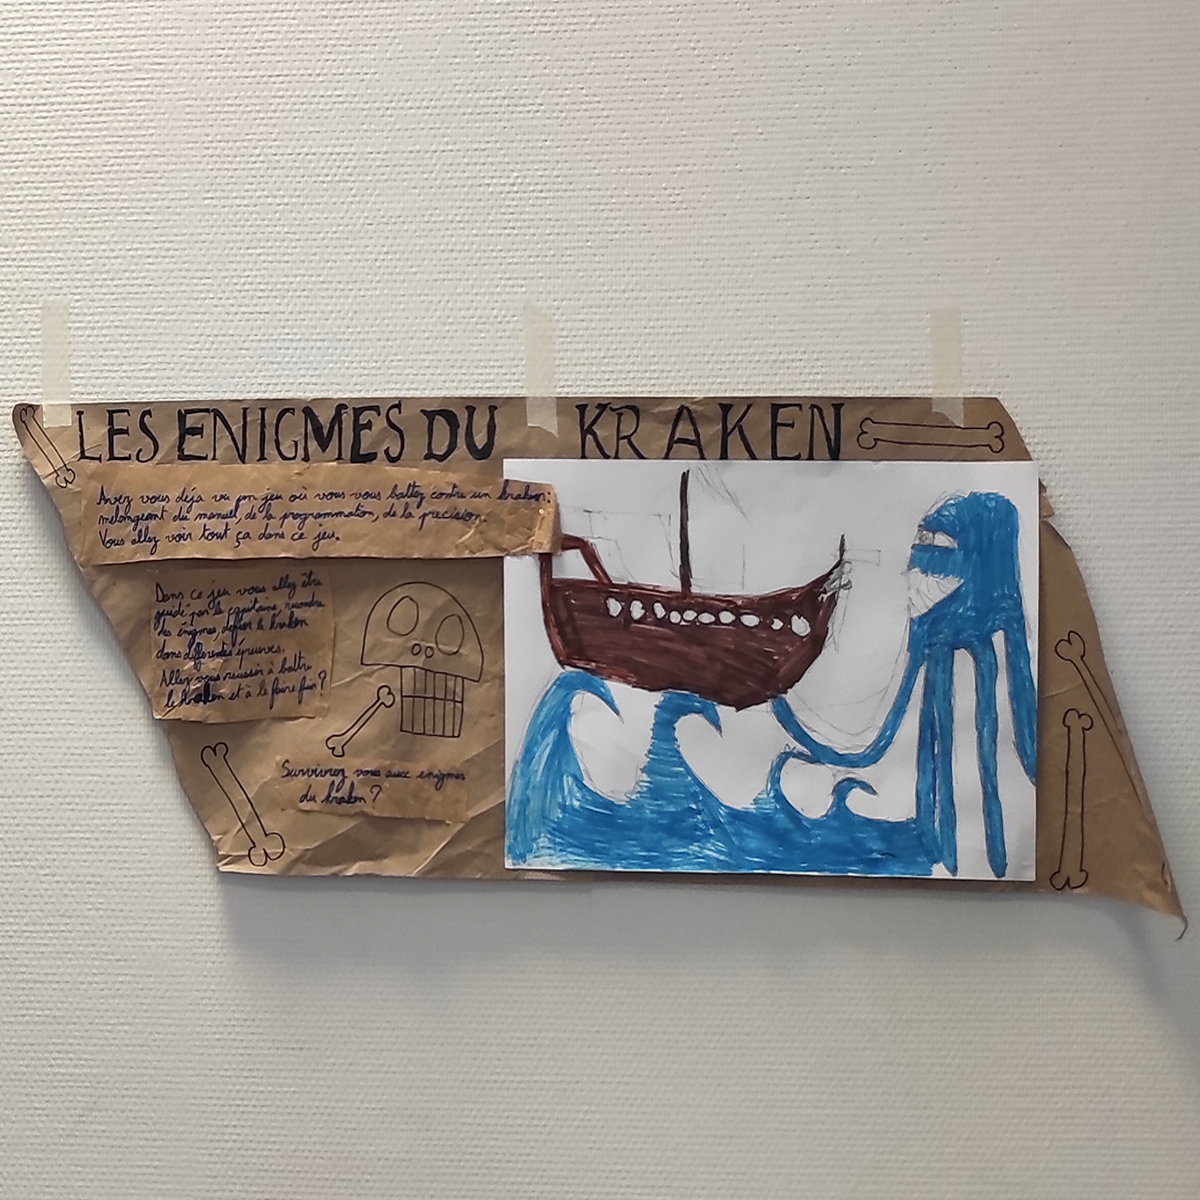 LES ENIGMES DU KRAKEN
Avez vous déja vu un jeu où vous vous battez contre un kraken:
mélongeant du manuel, de la programmation, de la precision.
Vous allez voir tout ça dans ce jeu.
Dans ce jeu vous allez être
guidé par le capitaine, résoudre
des énigmes, défier le kraken
dans différentes épreuves.
Allez vous reussir à battre
le kraken et à le faire fuir?
Survivrez vous aux enigmes
du kraken?